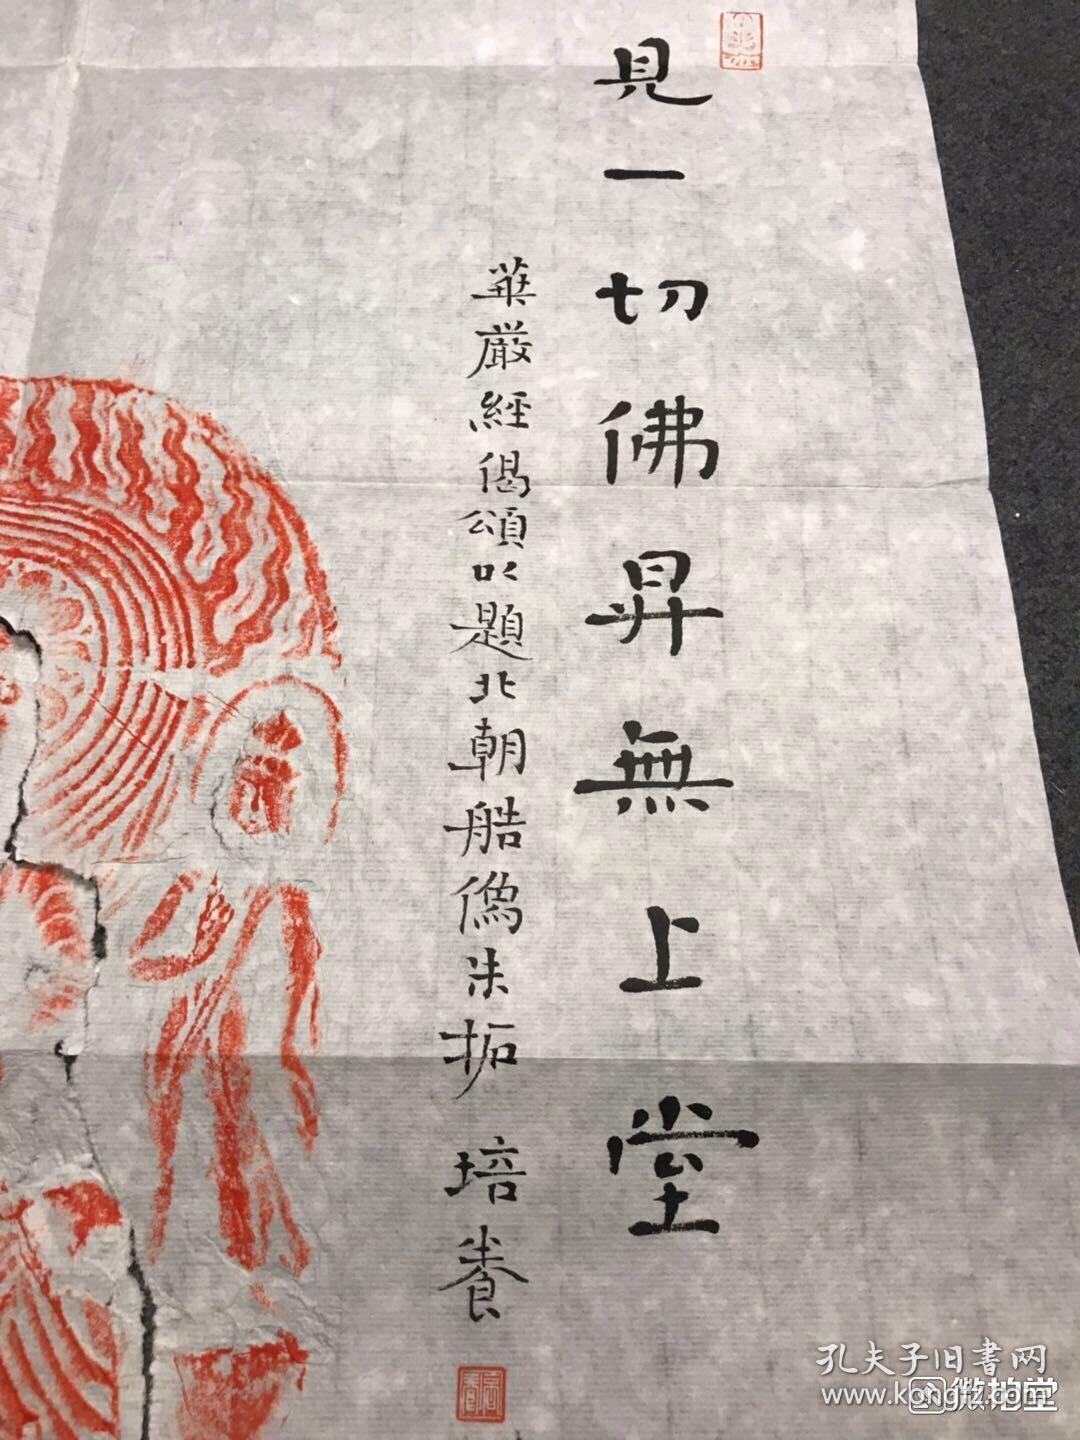 見一切佛昇無上堂
華嚴經偈頌以題北朝造像朱拓 培養
孔夫子旧書网
www.kongfz.com
微拍堂